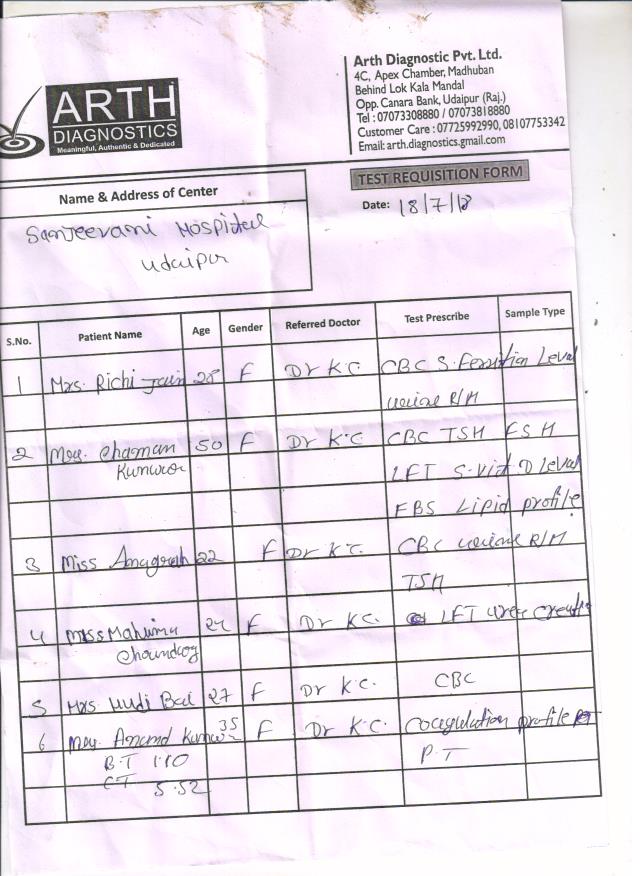 ARTH
DIAGNOSTICS
Meaningful, Authentic & Dedicated
Arth Diagnostic Pvt. Ltd.
4C, Apex Chamber, Madhuban
Behind Lok Kala Mandal
Opp. Canara Bank, Udaipur (Raj.)
Tel : 07073308880 / 07073818880
Customer Care : 07725992990, 08107753342
Email: arth.diagnostics.gmail.com
TEST REQUISITION FORM
Name & Address of Center
Date: 18/7/18
Sanjeevani Hospital
Udaipur
S.No. Patient Name Age Gender Referred Doctor Test Prescribe Sample Type
1 Mrs. Richi Jain 28 F Dr K.C. CBC S. Level
urine R/M
2 Chaman 50 F Dr K.C CBC TSH FSH
Kunwar LFT S. vit D level
FBS Lipid profile
3 Miss 22 F Dr K.C. CBC urine R/M
TSH
4 Miss Mahima F Dr K.C. LFT urea
5 Mrs. Bai 27 F Dr K.C. CBC
6 Anand 35 F Dr K.C. coagulation profile
BT 1.10 P.T
CT 5.52